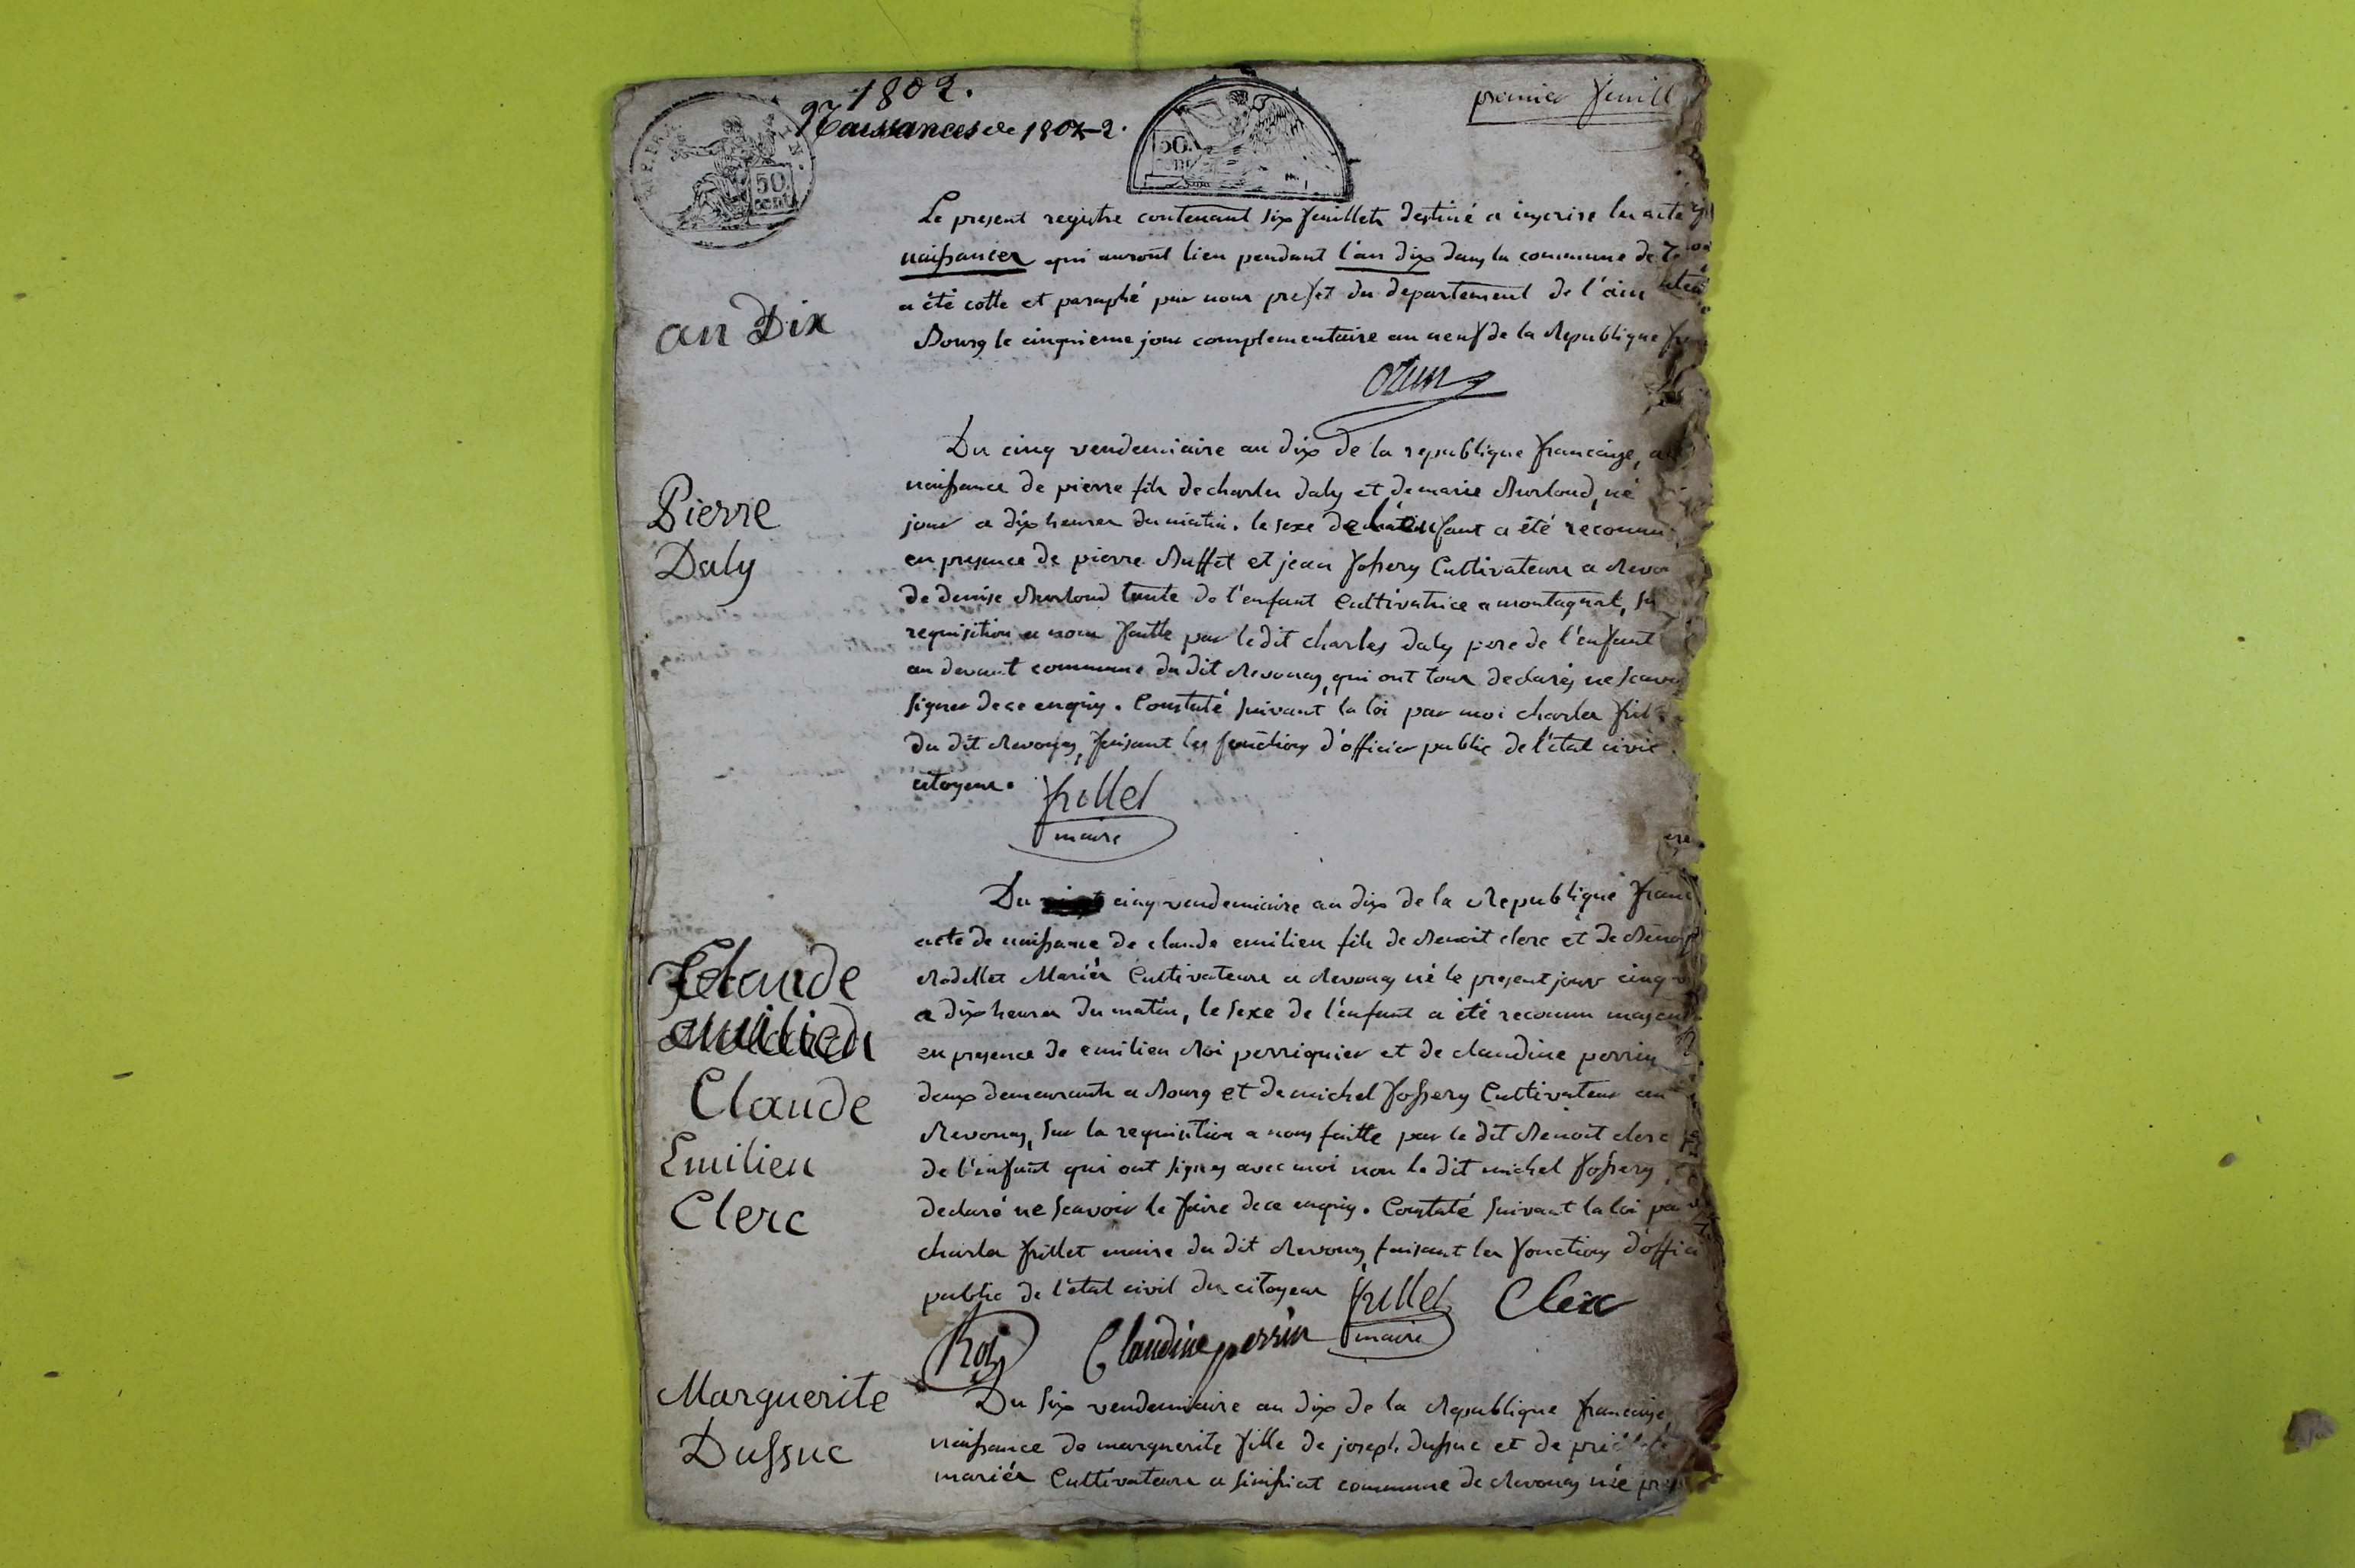 1802.
Naissances de 1801-2.
premier feuill
50
cent
50.
Le present registre contenant six feuillets destiné a inscrire les acte
naissances qui auront lieu pendant l'an dix dans la commune de
a été cotte et paraphé par nous prefet du departement de l'ain
an Dix
Bourg le cinquieme jour complementaire an neuf de la Republique
Ozun
Du cinq vendemiaire an dix de la republique francaise,
naissance de pierre fils de charles daly et de marie Burloud, né
Pierre
jour a dix heures du matin. le sexe de l'enfant a été reconnu
Daly
en presence de pierre Buffet et jean fossery Cultivateurs a Revo
de denise Burloud tante de l'enfant Cultivatrice a montagnat, su
requisition a nous faitte par le dit charles daly pere de l'enfant
au devant commune du dit Revonas, qui ont tous declarés ne scavoi
signer de ce enquis. Constaté suivant la loi par moi charles fril
du dit Revonas, faisant les fonctions d'officier public de l'état civil
citoyens.
frillet
maire
Du cinq vendemiaire an dix de la Republique franc
acte de naissance de claude emilien fils de Benoit clerc et de Benoi
Rodillet Mariés Cultivateurs a Revonas né le present jour cinq
a dix heures du matin, le sexe de l'enfant a été reconnu mascul
Claude
emilien
en presence de emilien Roi perriquier et de claudine perrin
Claude
deux demeurants a Bourg et de michel fossery Cultivateur au
Revonas, sur la requisition a nous faitte par le dit Benoit clerc
Emilien
de l'enfant qui ont signes avec moi non le dit michel fossery
Clerc
declaré ne scavoir le faire de ce enquis. Constaté suivant la loi pa
charles frillet maire du dit Revonas, faisant les fonctions d'offici
public de l'état civil des citoyens
frillet
maire
Clerc
Roi
Claudine perrin
Marguerite
Du six vendemiaire an dix de la Republique francaise,
Dussuc
naissance de marguerite fille de joseph dussuc et de
mariés Cultivateurs a simfriat commune de Revonas née